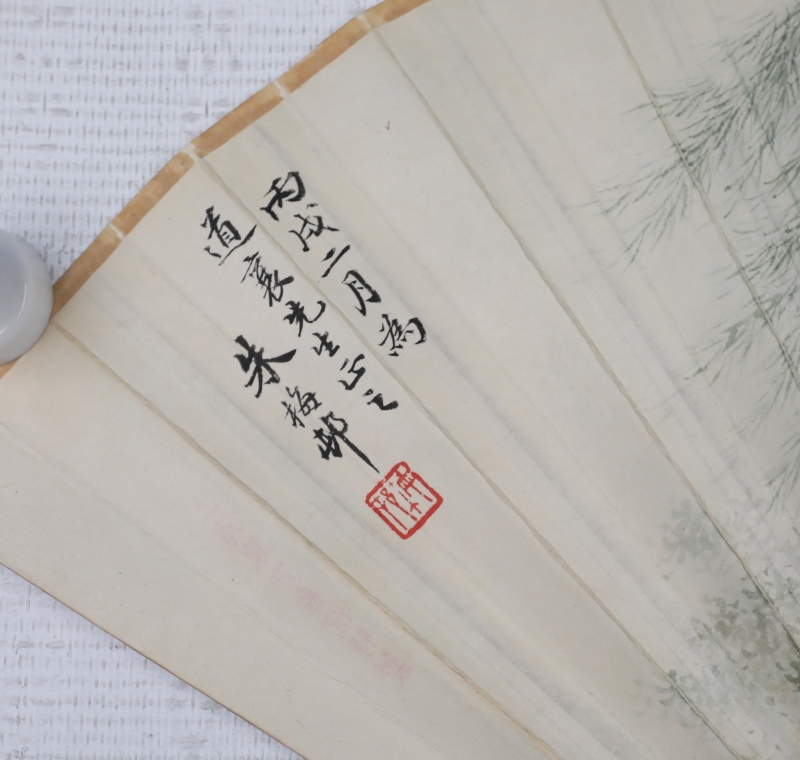 丙戌二月为
道襄先生正之
朱梅邨